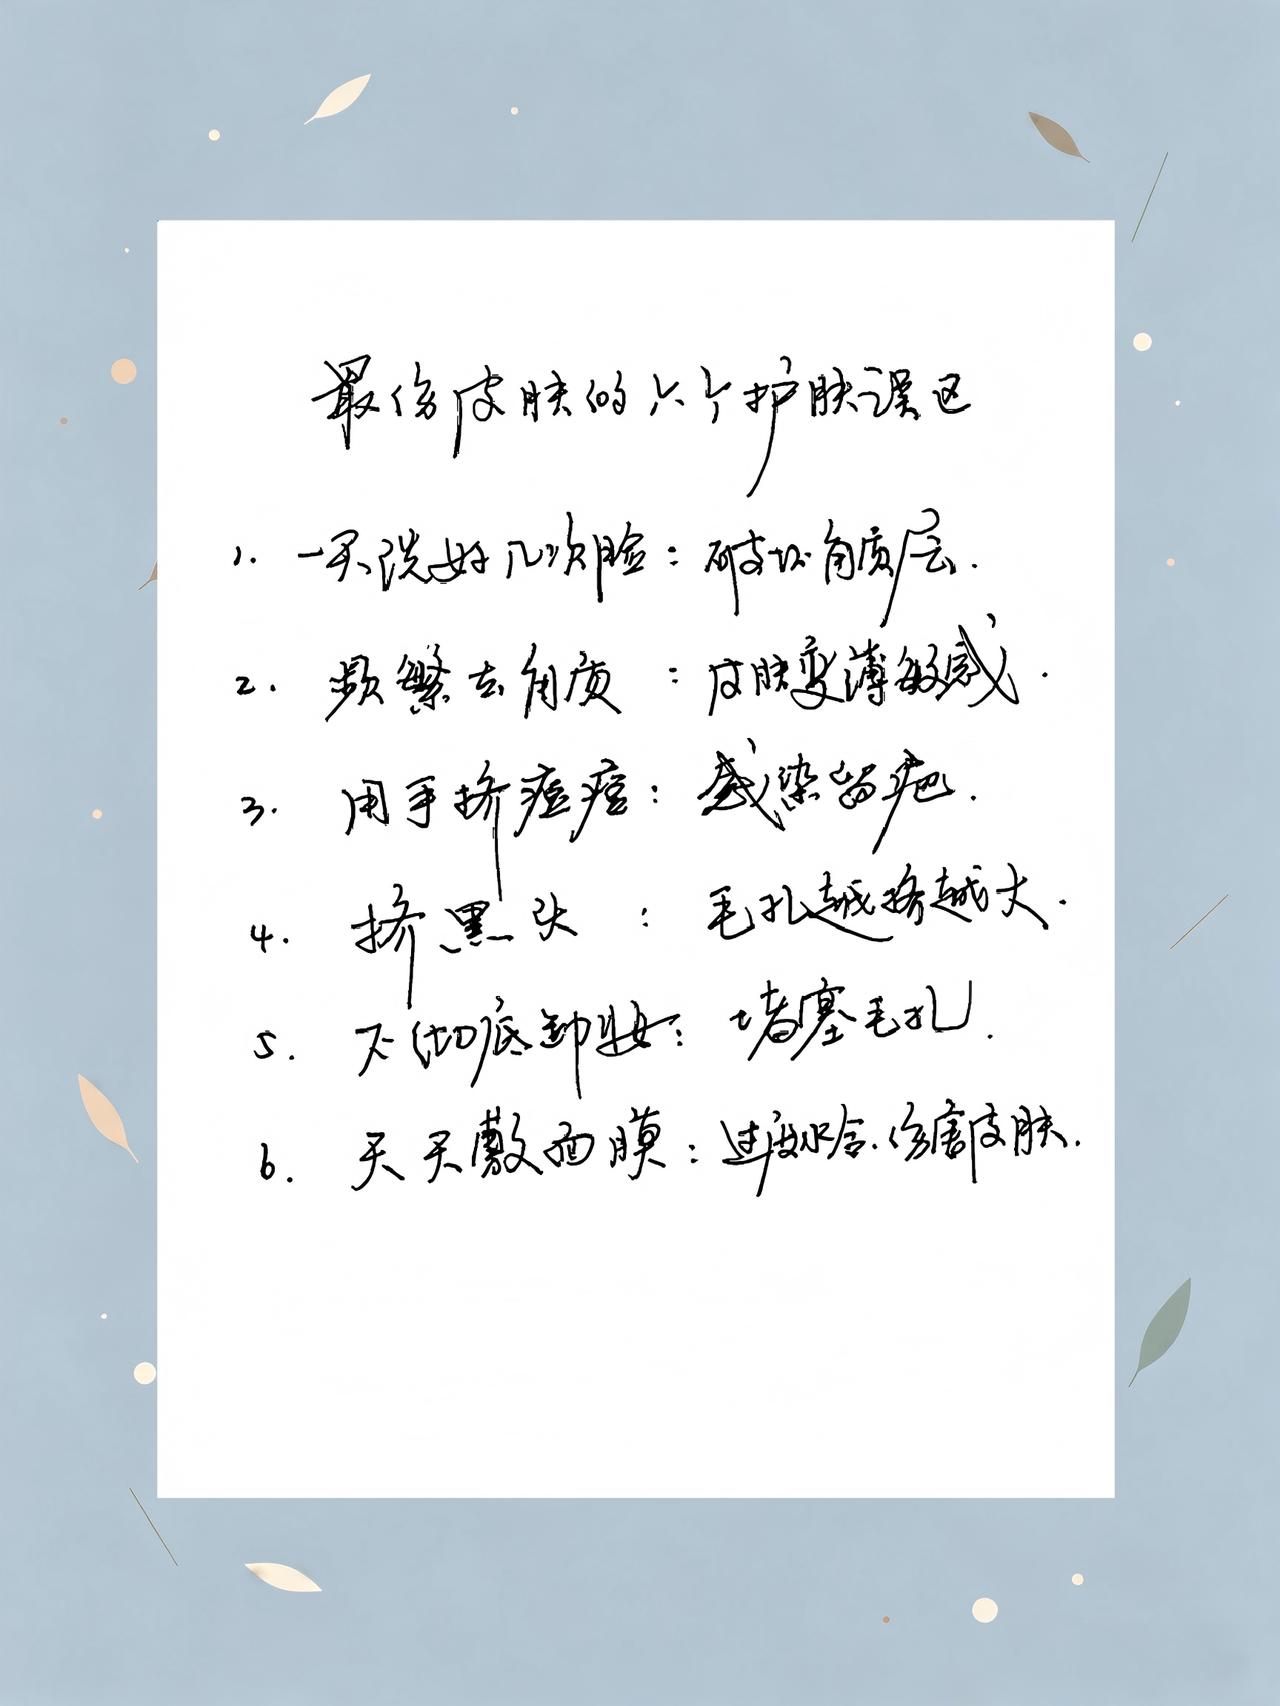 最伤皮肤的六个护肤误区
1. 一天洗好几次脸：破坏角质层.
2. 频繁去角质：皮肤变薄敏感.
3. 用手挤痘痘：感染留疤.
4. 挤黑头：毛孔越挤越大.
5. 不彻底卸妆：堵塞毛孔.
6. 天天敷面膜：过度水合.伤害皮肤.